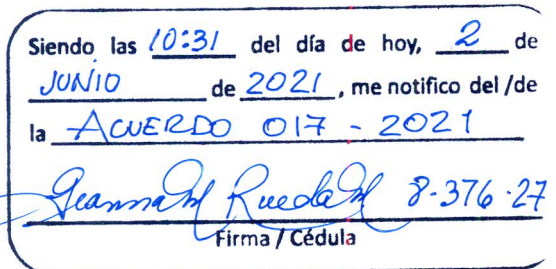 Siendo las 10:31 del día de hoy, 2 de
JUNIO de 2021, me notifico del /de
la ACUERDO 017 - 2021
Rueda 8-376-27
Firma / Cédula